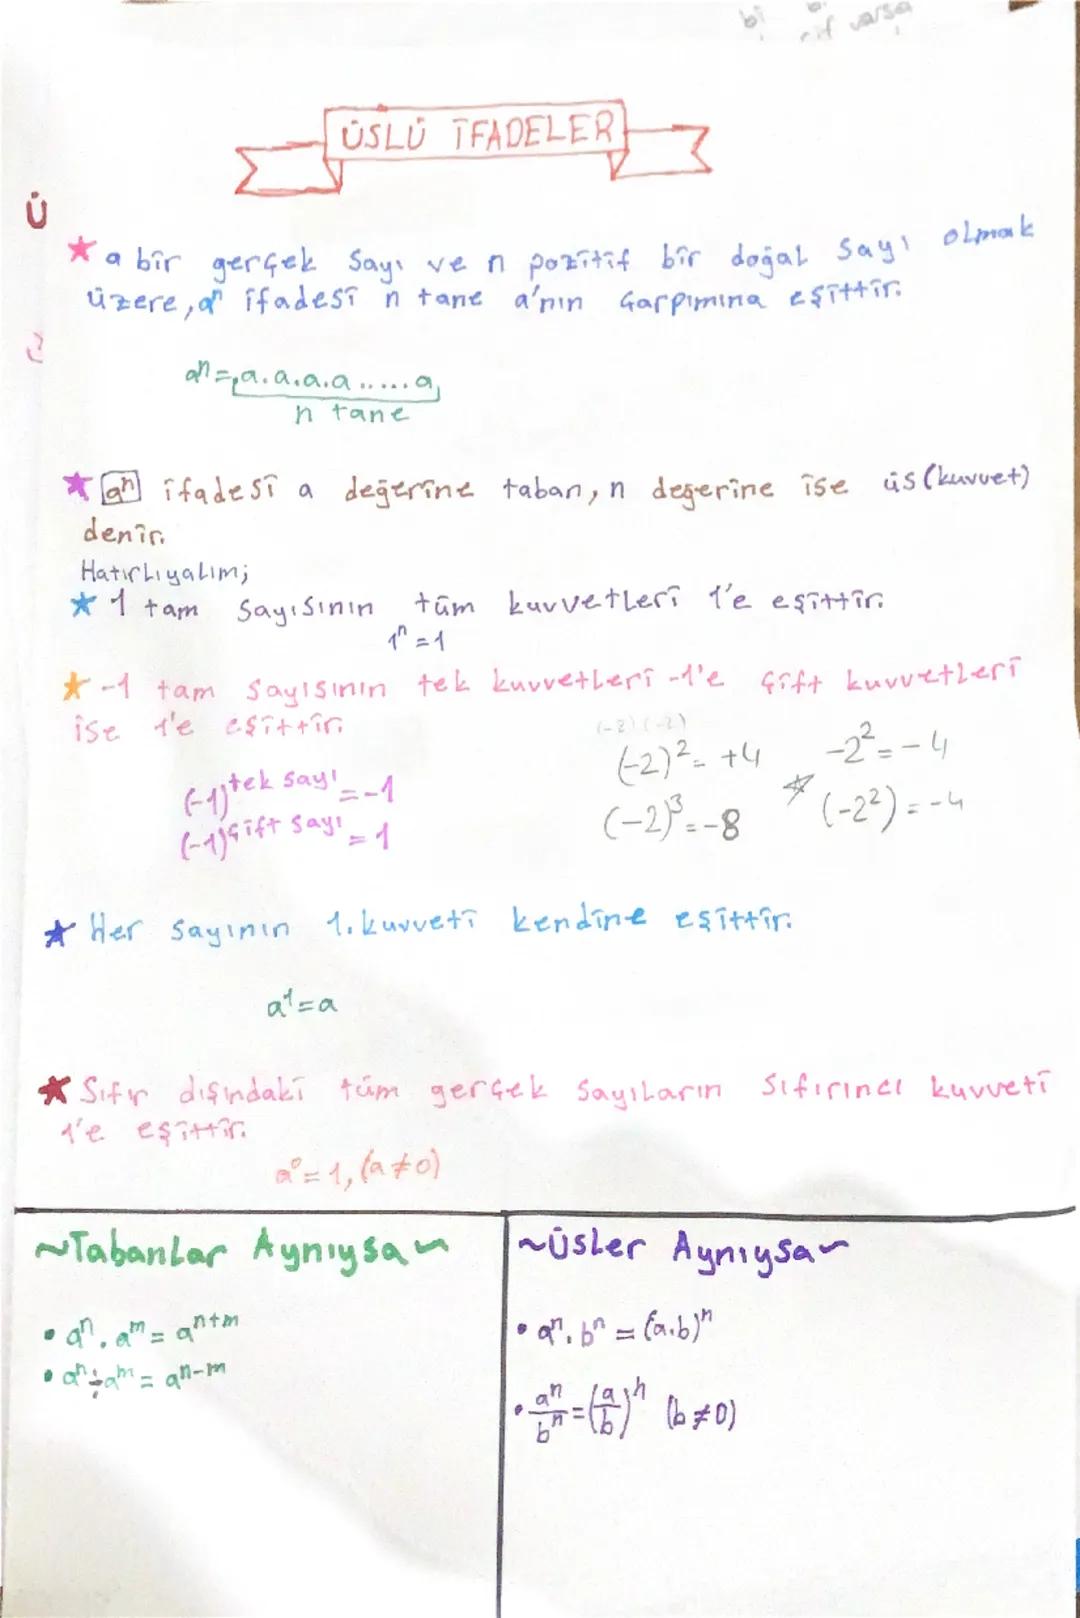 bi
rif varsa
ÜSLÜ İFADELER
Ü
★ a bir gerçek sayı ve n pozitif bir doğal sayı olmak
üzere, aⁿ ifadesi n tane a'nın Çarpımına eşittir.
aⁿ = a.a.a.a.....a
n tane
★ aⁿ ifadesi a değerine taban, n değerine ise üs (kuvvet)
denir.
Hatırlıyalım;
★ 1 tam sayısının tüm kuvvetleri 1'e eşittir.
1ⁿ = 1
★ -1 tam sayısının tek kuvvetleri -1'e çift kuvvetleri
ise 1'e eşittir.
(-2)(-2)
(-2)² = +4 -2² = -4
(-1)^tek sayı = -1
(-2)³ = -8 ☆ (-2²) = -4
(-1)^çift sayı = 1
★ Her sayının 1. kuvveti kendine eşittir.
a¹ = a
★ Sıfır dışındaki tüm gerçek sayıların sıfırıncı kuvveti
1'e eşittir.
a⁰ = 1, (a ≠ 0)
~Tabanlar Aynıysa~
• aⁿ . aᵐ = aⁿ⁺ᵐ
• aⁿ ÷ aᵐ = aⁿ⁻ᵐ
~Üsler Aynıysa~
• aⁿ . bⁿ = (a.b)ⁿ
• aⁿ/bⁿ = (a/b)ⁿ (b ≠ 0)